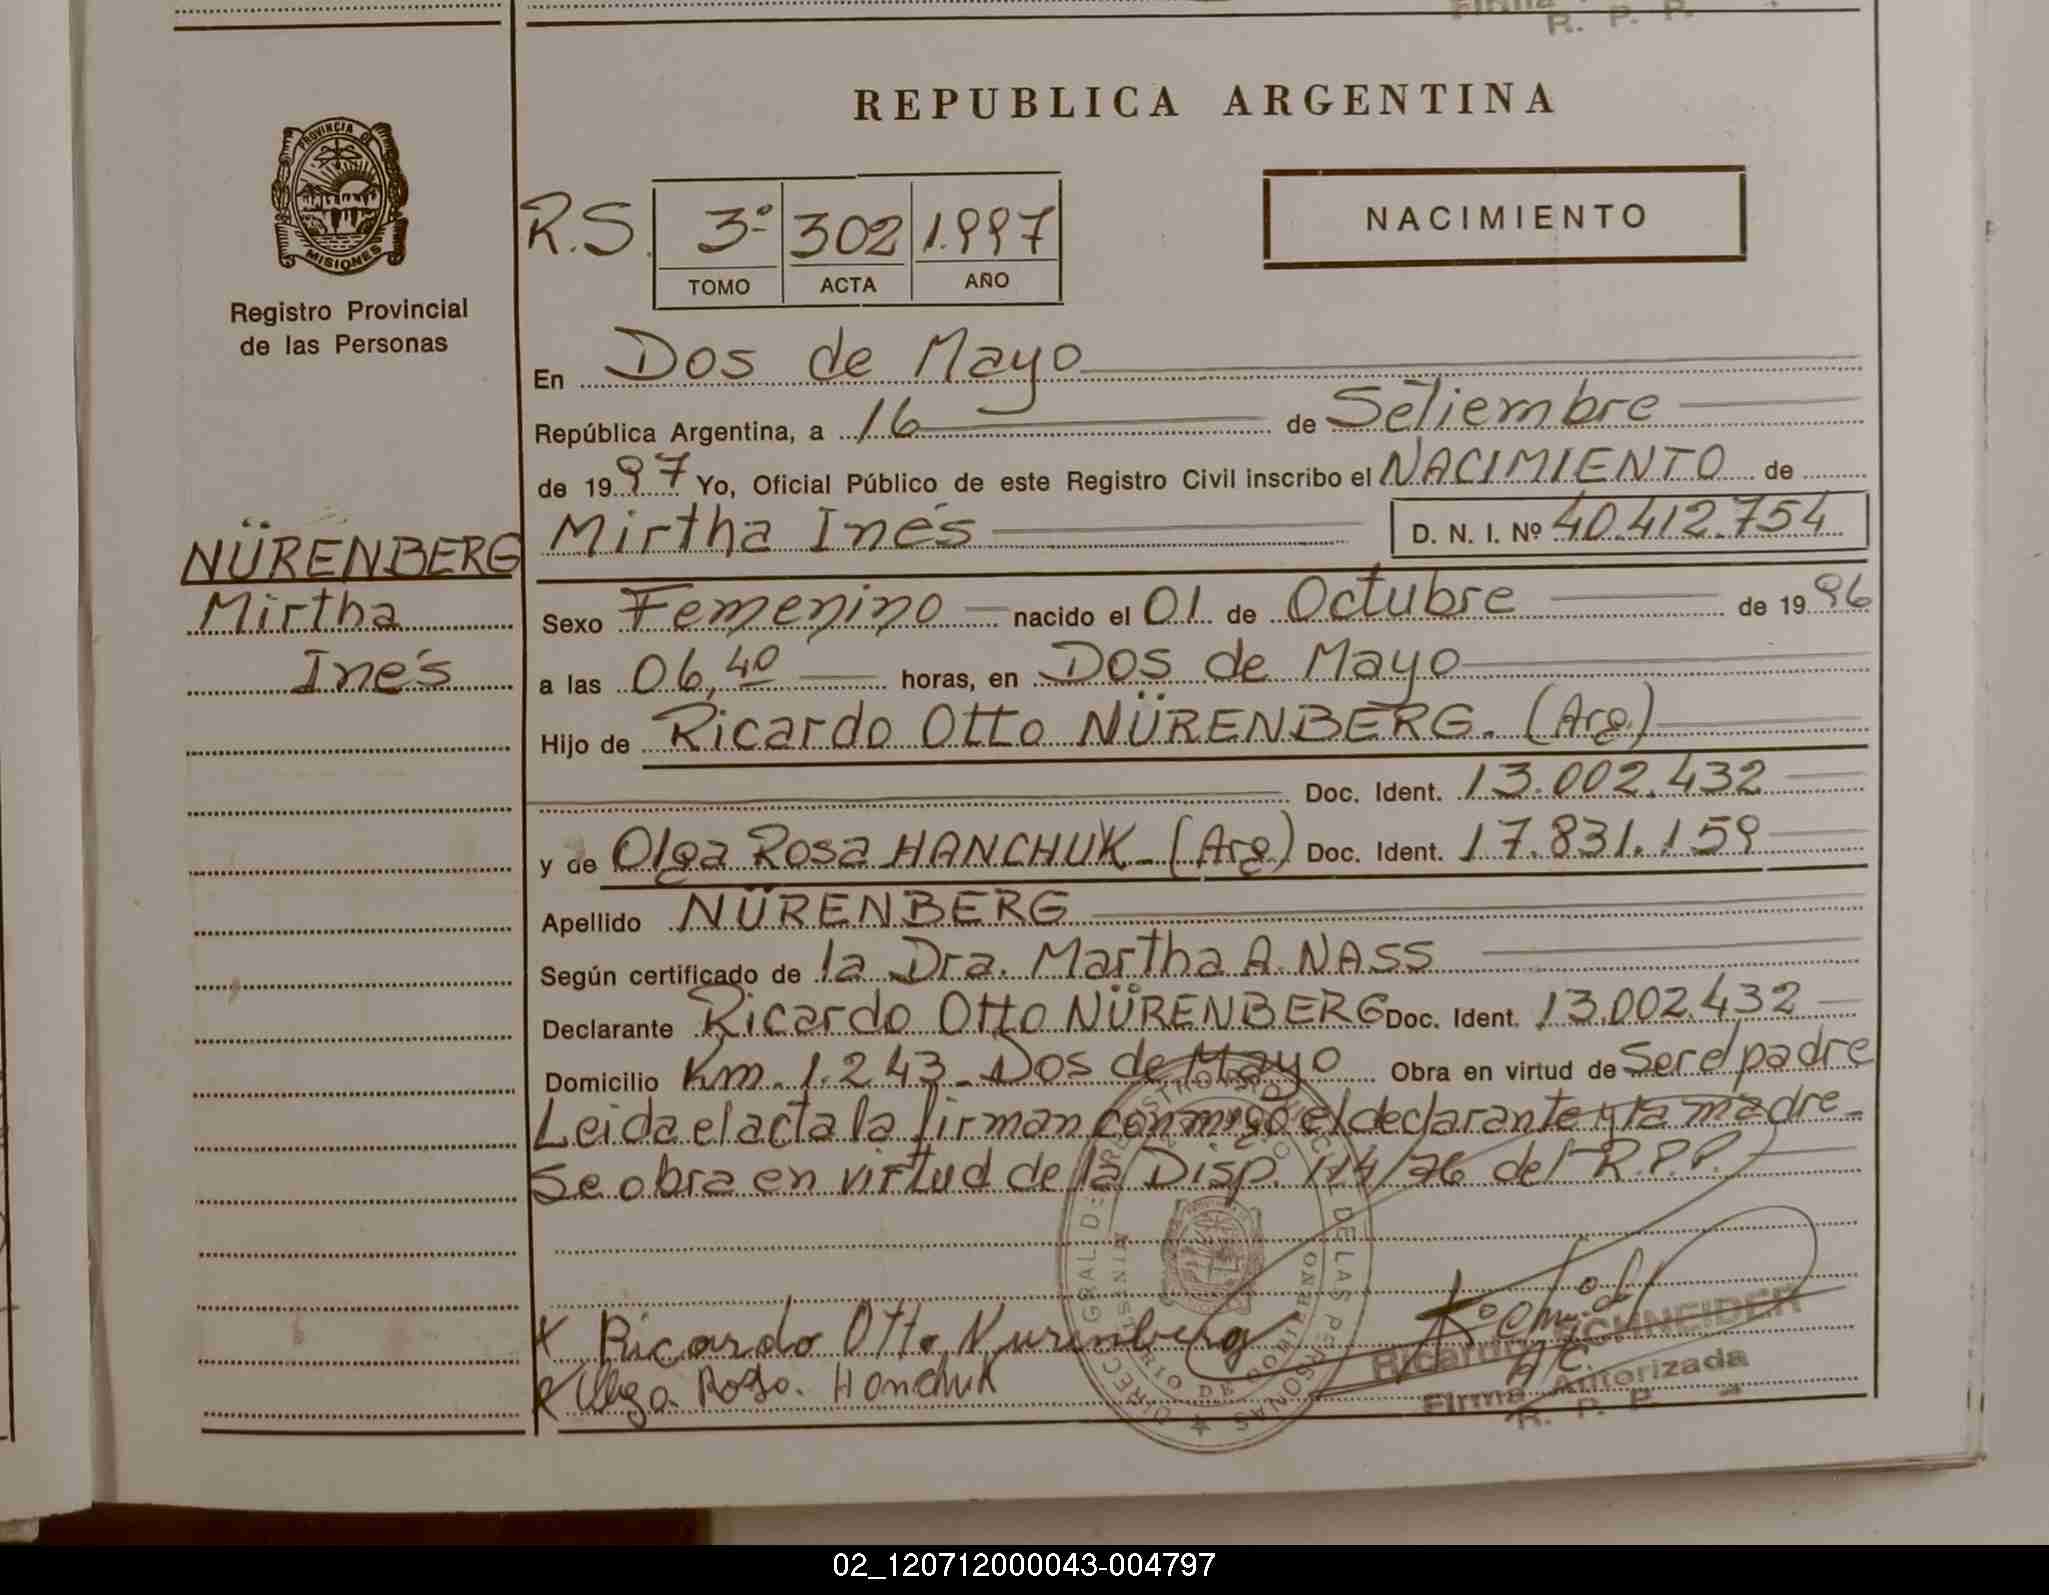 REPUBLICA ARGENTINA
PROVINCIA DE
MISIONES
Registro Provincial
de las Personas
R.S. 3º 302 1.997
TOMO ACTA AÑO
NACIMIENTO
En Dos de Mayo
República Argentina, a 16 de Setiembre
de 1997 Yo, Oficial Público de este Registro Civil inscribo el NACIMIENTO de
NÜRENBERG
Mirtha
Inés
Mirtha Inés D. N. I. Nº 40.412.754
Sexo Femenino nacido el 01 de Octubre de 1996
a las 06,40 horas, en Dos de Mayo
Hijo de Ricardo Otto NÜRENBERG. (Arg)
Doc. Ident. 13.002.432
y de Olga Rosa HANCHUK - (Arg) Doc. Ident. 17.831.159
Apellido NÜRENBERG
Según certificado de la Dra. Martha A. NASS
Declarante Ricardo Otto NÜRENBERG Doc. Ident. 13.002.432
Domicilio Km. 1.243 - Dos de Mayo Obra en virtud de Ser el padre
Leida el acta la firman conmigo el declarante y la madre -
Se obra en virtud de la Disp. 114/76 del R.P.P.
x Ricardo Otto Nurenberg
x Olga Rosa. Hanchuk
SCHNEIDER
Firma Autorizada
R. P. P.
02_120712000043-004797